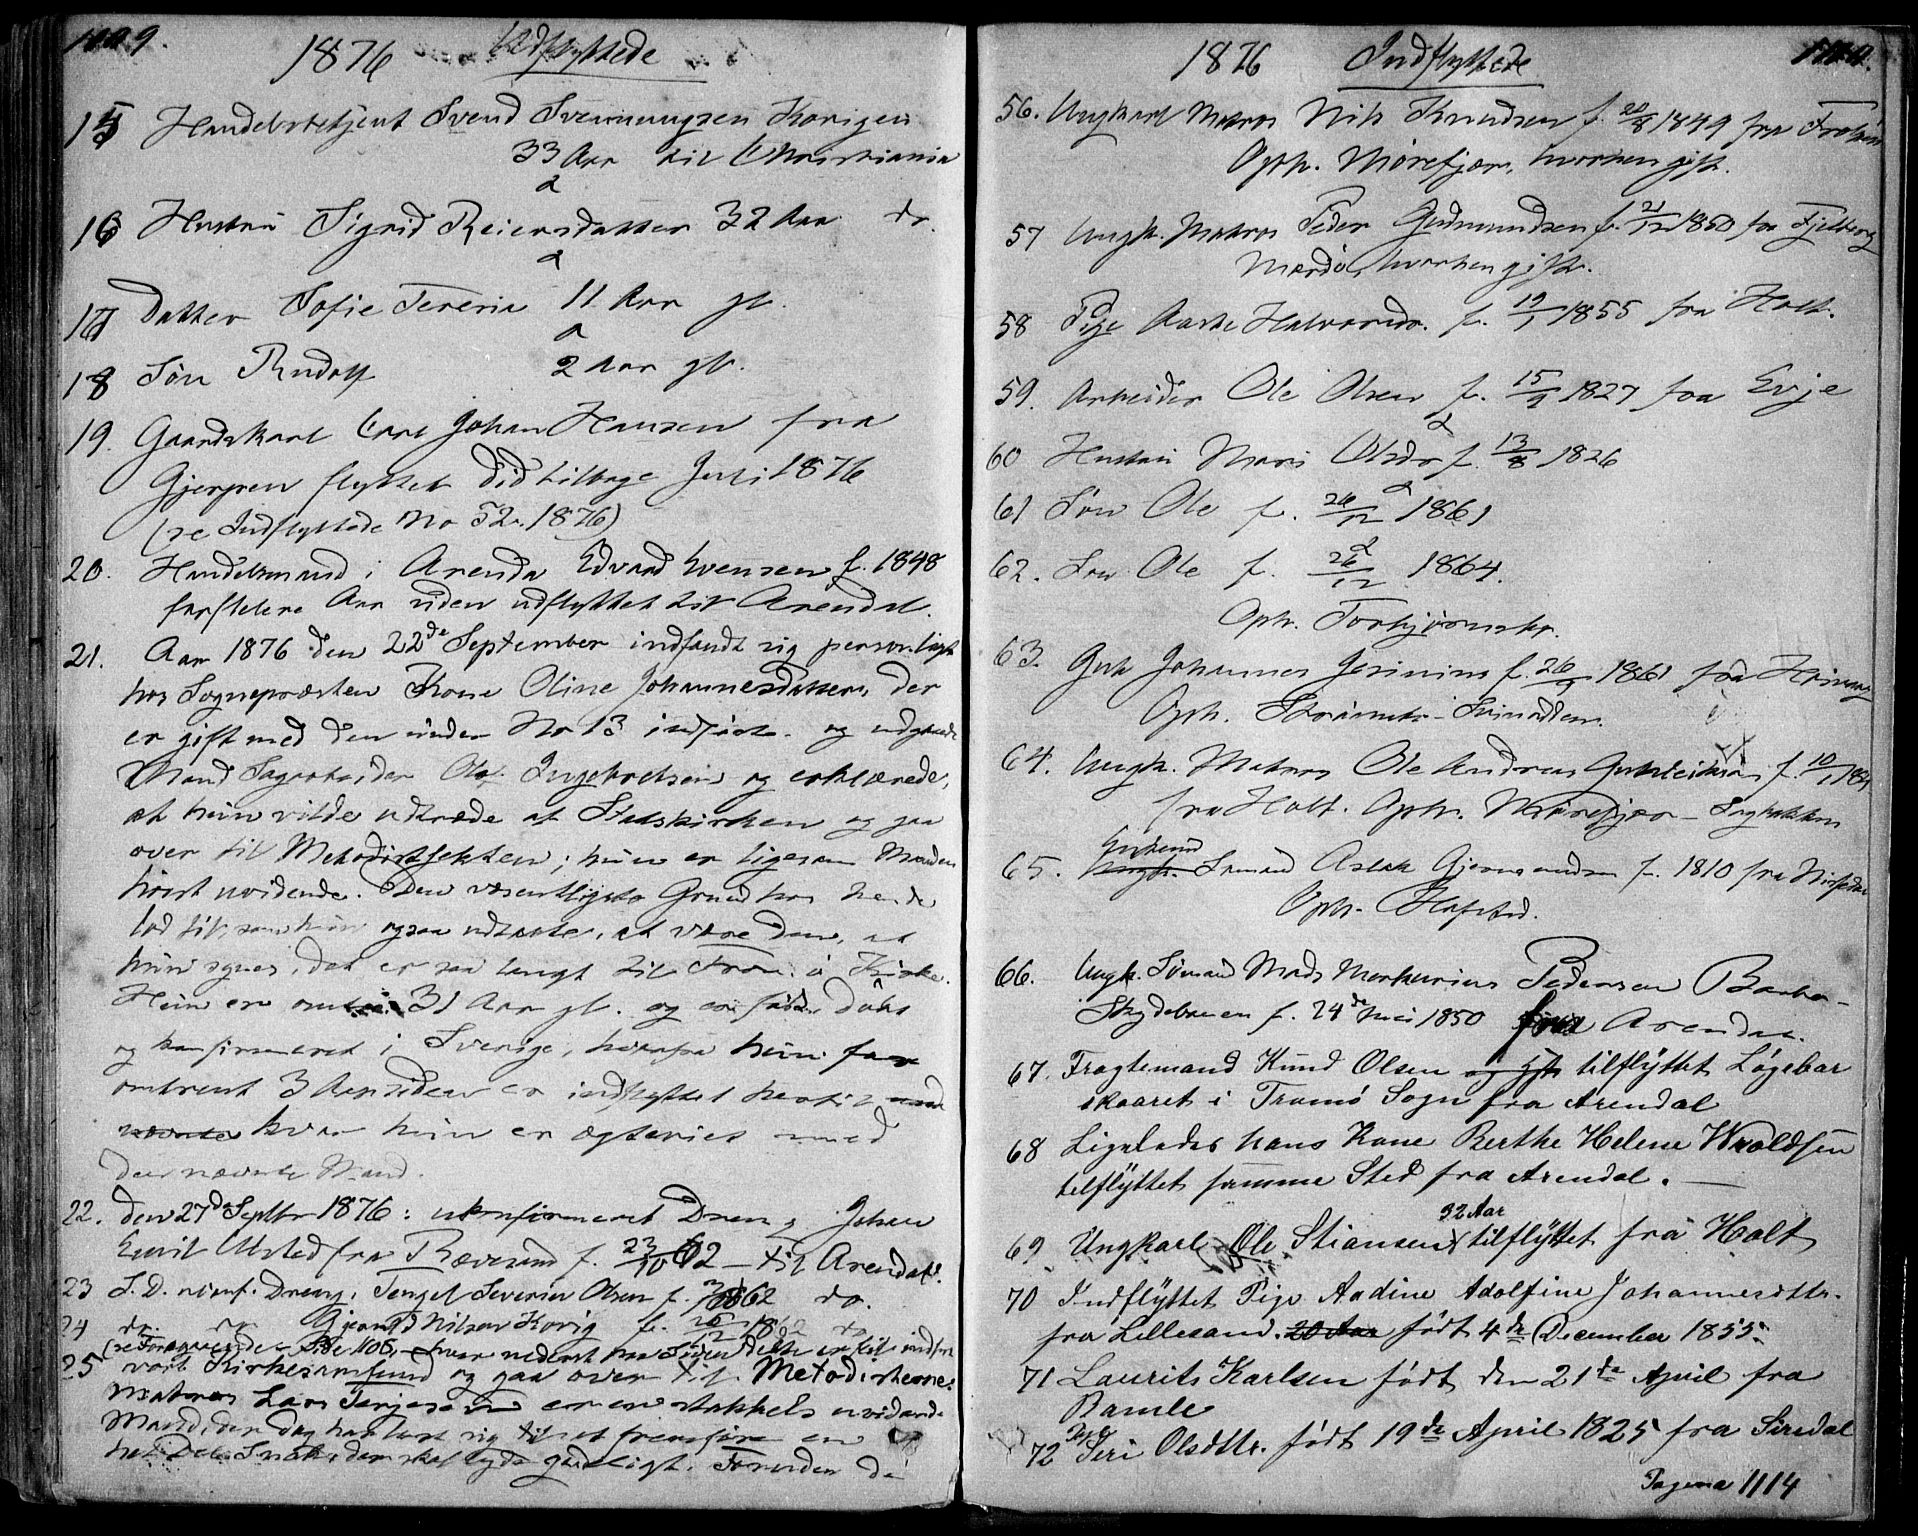 1109.
1876 Udflyttede
15 Handelsbetjent Svend Svenningsen Korigen
33 Aar til Christiania
16 Hustru Sigrid Reiersdatter 32 Aar do.
17 Datter Sofie Tereria 11 Aar gl.
18 Søn Rudolf 2 Aar gl.
19. Gaardskarl Carl Johan Hansen fra
Gjerpen flyttet did tilbage Juli 1876
(se Indflyttede No 52. 1876)
20. Handelsmand i Arendal Edvard Svensen f. 1848
for flere Aar siden udflyttet til Arendal.
21. Aar 1876 den 22de September indfandt sig personligt
hos Sognepræsten Kone Oline Johannesdatter, der
er gift med den under No 13 indførte og udgaaede
Mand Sagarbeider Ole Ingebretsen og erklærede,
at hun vilde udtræde af Statskirken og gaa
over til Methodistsekten; hun er ligesom Manden
høist uvidende. Den væsentligste Grund hos hende
lod til, som hun ogsaa udtalte, at være den, at
hun synes, det er saa langt til Tromø Kirke.
Hun er omtr. 31 Aar gl. og er født, døbt
og konfirmeret i Sverige, hvorfra hun for
omtrent 3 Aar siden er indflyttet hertil
hvor hun er ægteviet med
den nævnte Mand.
22. den 27de Septbr 1876: ukonfirmeret Dreng Johan
Emil Alsted fra Revesand f. 23/10 62 – til Arendal.
23 S. D. ukonf. Dreng, Tengel Severin Olsen f. 1862 do.
24 do. do Gjeruld Nilsen Korig f. 26/12 18 do
(se Foregaaende Side 1106, hvor nederst paa Siden dette er
25 vort Kirkesamfund og gaa over til Metodisterne.
Matros Lars Terjesen er en stakkels uvidende
Mand, der dog har lært sig til at fremføre en
hel Del Snak, der skal lyde gudeligt. Foruden de
1110.
1876 Indflyttede
56. Ungkarl Matros Nils Knudsen f. 20/8 1849 fra Froland
Oph. Mørefjær, hvorhen gift.
57 Ungk. Matros Peder Gudmundsen f. 21/12 1850 fra Fjelberg
Mærdø, hvorhen gift.
58 Pige Aaste Halvorsdr. f. 19/1 1855 fra Holt.
59. Arbeider Ole Olsen f. 15/9 1827 fra Evje
60 Hustru Mari Olsdr f. 13/8 1826
61 Søn Ole f. 26/12 1861
62. Søn Ole f. 26/12 1864.
Oph. Torbjørnsbr.
63. Gut Johannes Jesinius f. 26/9 1861 fra Hrivaag
Oph. Strømsbr-Srinodden.
64. Ungk. Matros Ole Andreas f. 10/1
fra Holt. Oph. Mørefjær – Sagbakken
65. Enkemd Ungk. Sømand Aslak Gjermundsen f. 1810 fra Nissedal
Oph. Hofsted.
66. Ungk. Sømand Mads Markurius Pedersen Barbo-
Skydebanen f. 24de Mai 1850 fra Arendal.
67. Fragtemand Knud Olsen og gift tilflyttet Løgebar
skaaret i Tromø Sogn fra Arendal
68 Ligeledes hans Kone Berthe Helene Wroldsen
tilflyttet samme Sted fra Arendal. —
69 Ungkarl Ole Stiansen 32 Aar tilflyttet fra Holt
70 Indflyttet Pige Andine Adolfine Johannesdttr.
fra Lillesand. 20 Aar født 4de December 1855.
71 Laurits Karlsen født den 21de April fra
Bamle
72 Pige Siri Olsdttr. født 19de April 1825 fra Siredal
Pagina 1114